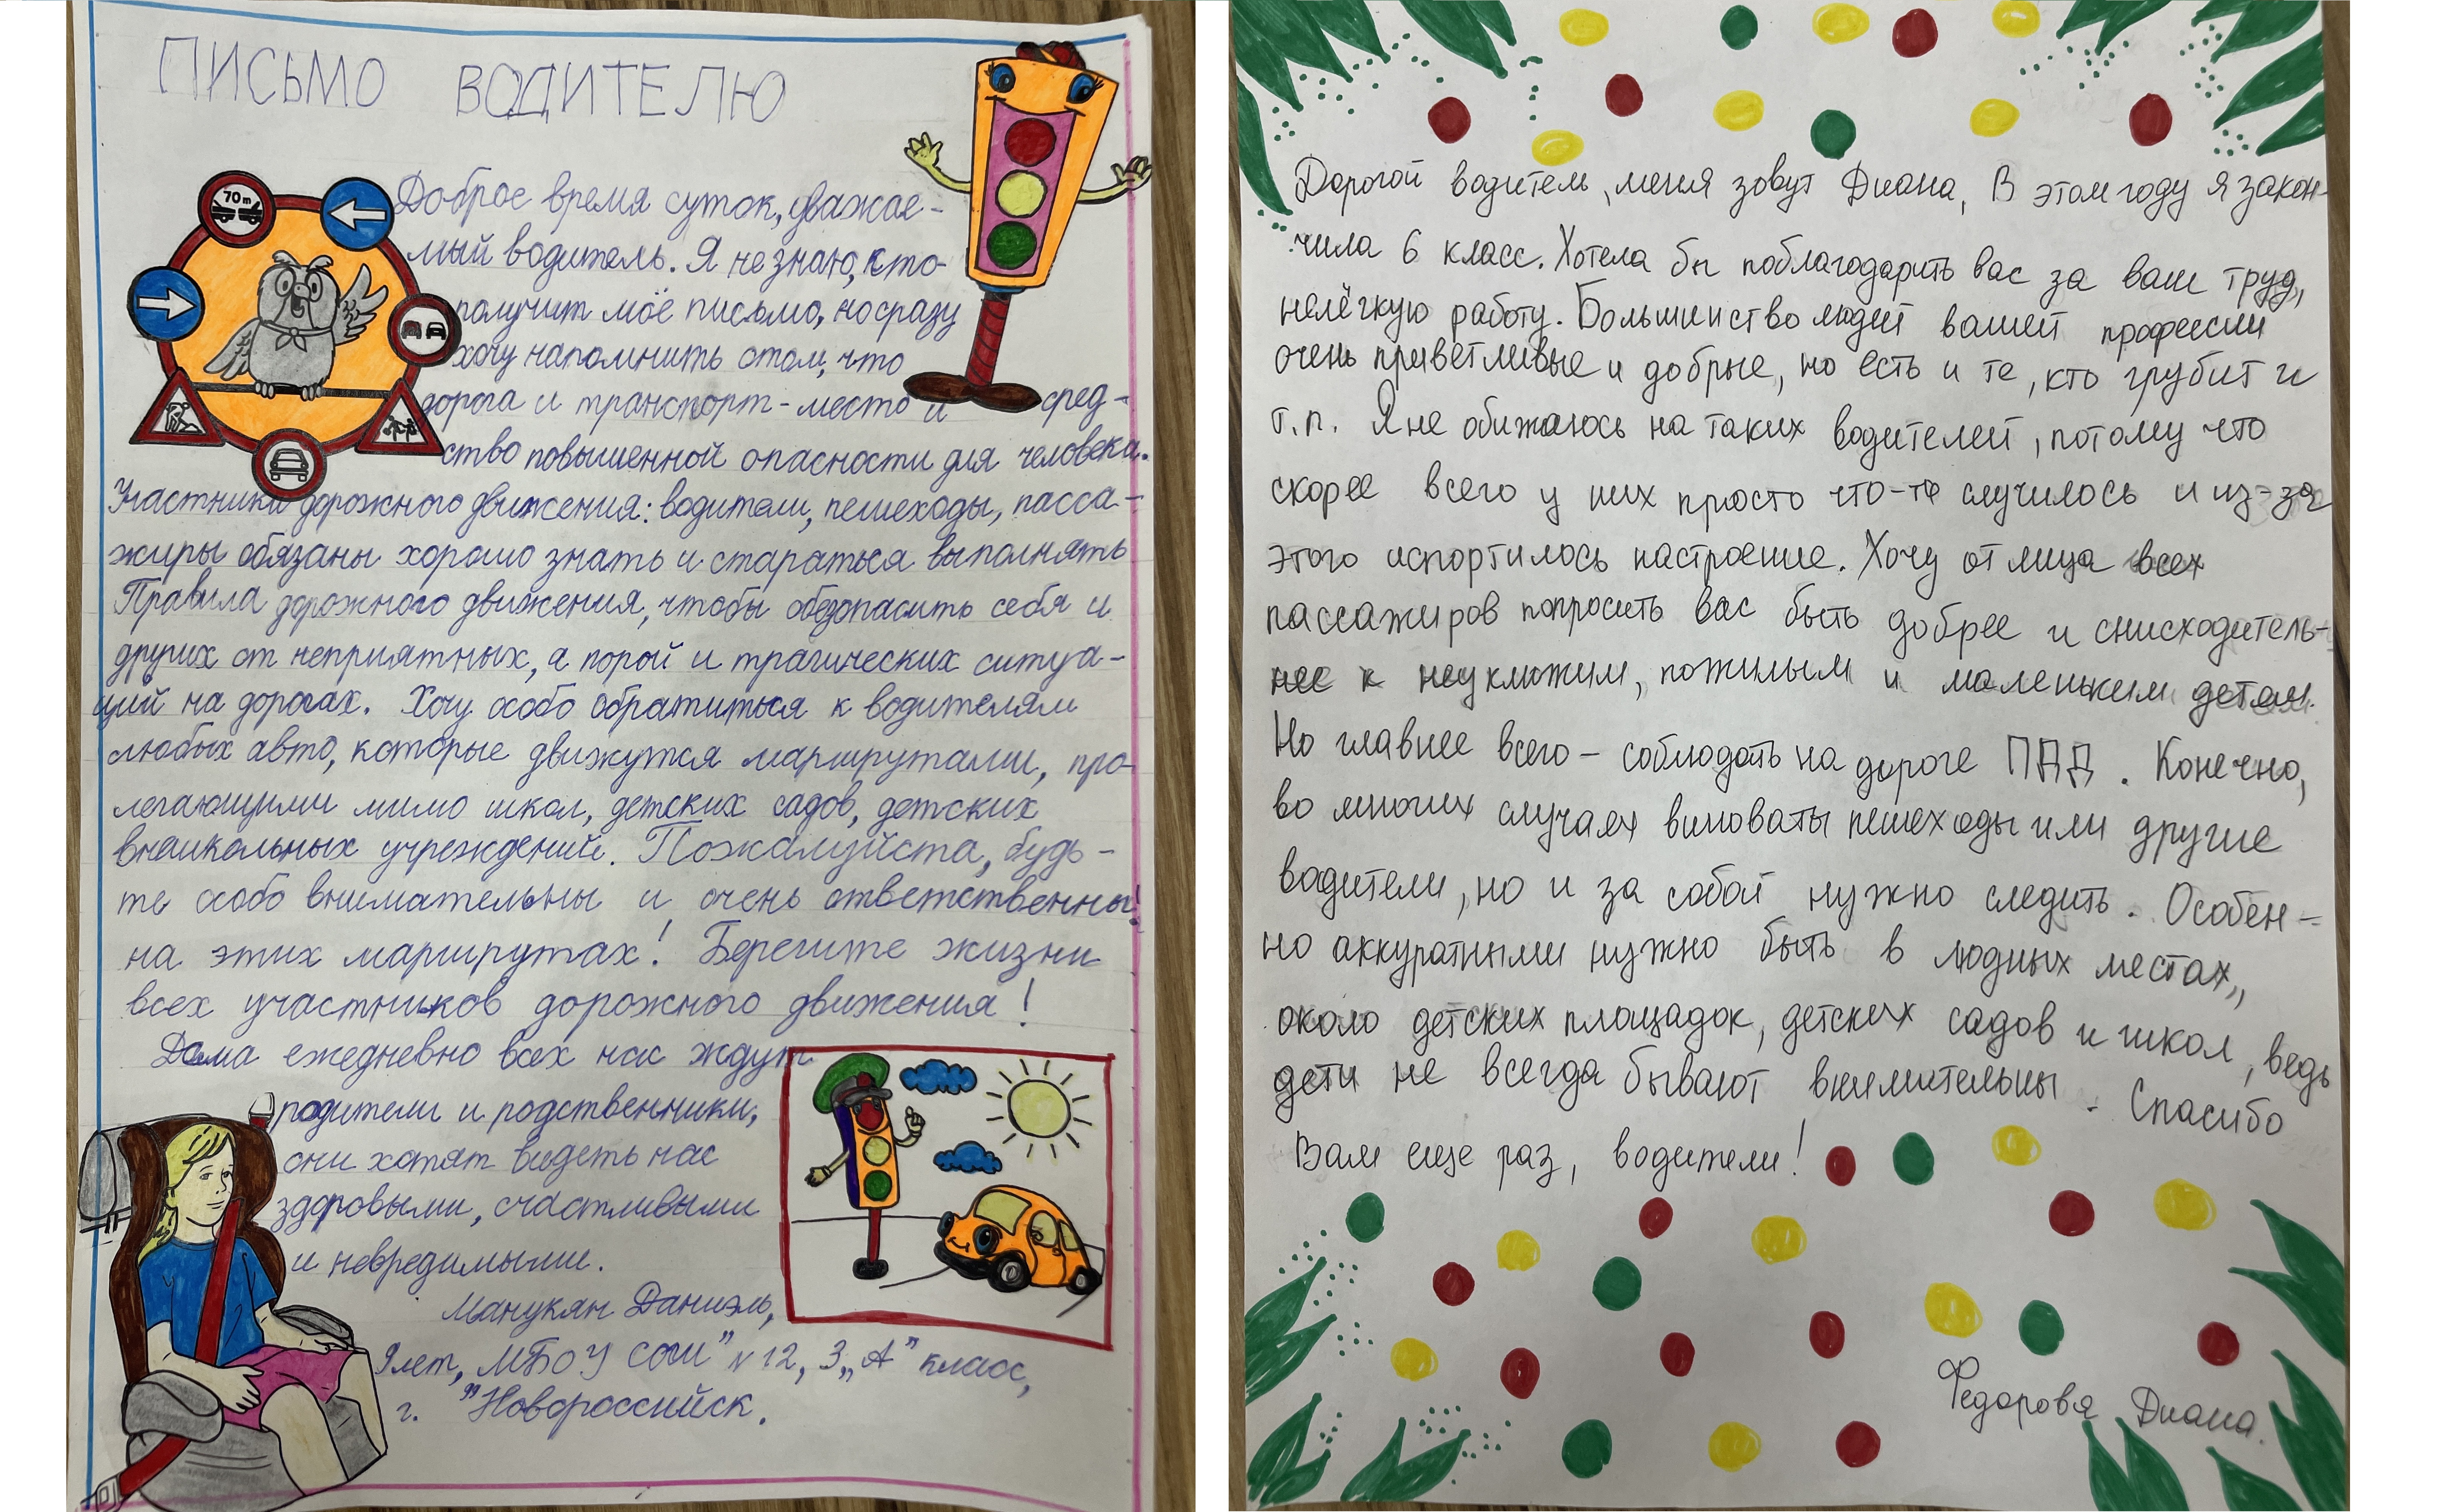 ПИСЬМО ВОДИТЕЛЮ
70 m
Доброе время суток, уважае-
мый водитель. Я не знаю, кто
получит моё письмо, но сразу
хочу напомнить о том, что
дорога и транспорт - место и сред-
ство повышенной опасности для человека.
Участники дорожного движения: водители, пешеходы, пасса-
жиры обязаны хорошо знать и стараться выполнять
Правила дорожного движения, чтобы обезопасить себя и
других от неприятных, а порой и трагических ситуа-
ций на дорогах. Хочу особо обратиться к водителям
любых авто, которые движутся маршрутами, про-
легающими мимо школ, детских садов, детских
внешкольных учреждений. Пожалуйста, будь-
те особо внимательны и очень ответственны!
на этих маршрутах! Берегите жизни
всех участников дорожного движения!
Дома ежедневно всех нас ждут
родители и родственники,
они хотят видеть нас
здоровыми, счастливыми
и невредимыми.
Манукян Даниэль,
9 лет, МБОУ СОШ" №12, 3 „А" класс,
г. "Новороссийск.
Дорогой водитель, меня зовут Диана, В этом году я закон-
чила 6 класс. Хотела бы поблагодарить вас за ваш труд,
нелёгкую работу. Большинство людей вашей профессии
очень приветливые и добрые, но есть и те, кто грубит и
т.п. Я не обижаюсь на таких водителей, потому что
скорее всего у них просто что-то случилось и из-за
этого испортилось настроение. Хочу от лица всех
пассажиров попросить вас быть добрее и снисходитель-
нее к неуклюжим, пожилым и маленьким детям.
Но главнее всего - соблюдать на дороге ПДД. Конечно,
во многих случаях виноваты пешеходы или другие
водители, но и за собой нужно следить. Особен-
но аккуратными нужно быть в людных местах,,
около детских площадок, детских садов и школ, ведь
дети не всегда бывают внимительны. Спасибо
Вам еще раз, водители!
Федорова Диана.